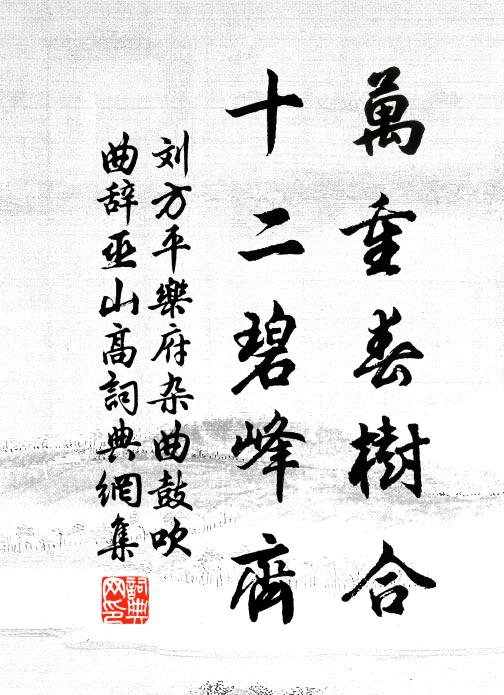 萬重春樹合
十二碧峰齊
刘方平樂府杂曲鼓吹
曲辞巫山高詞典網集
詞典